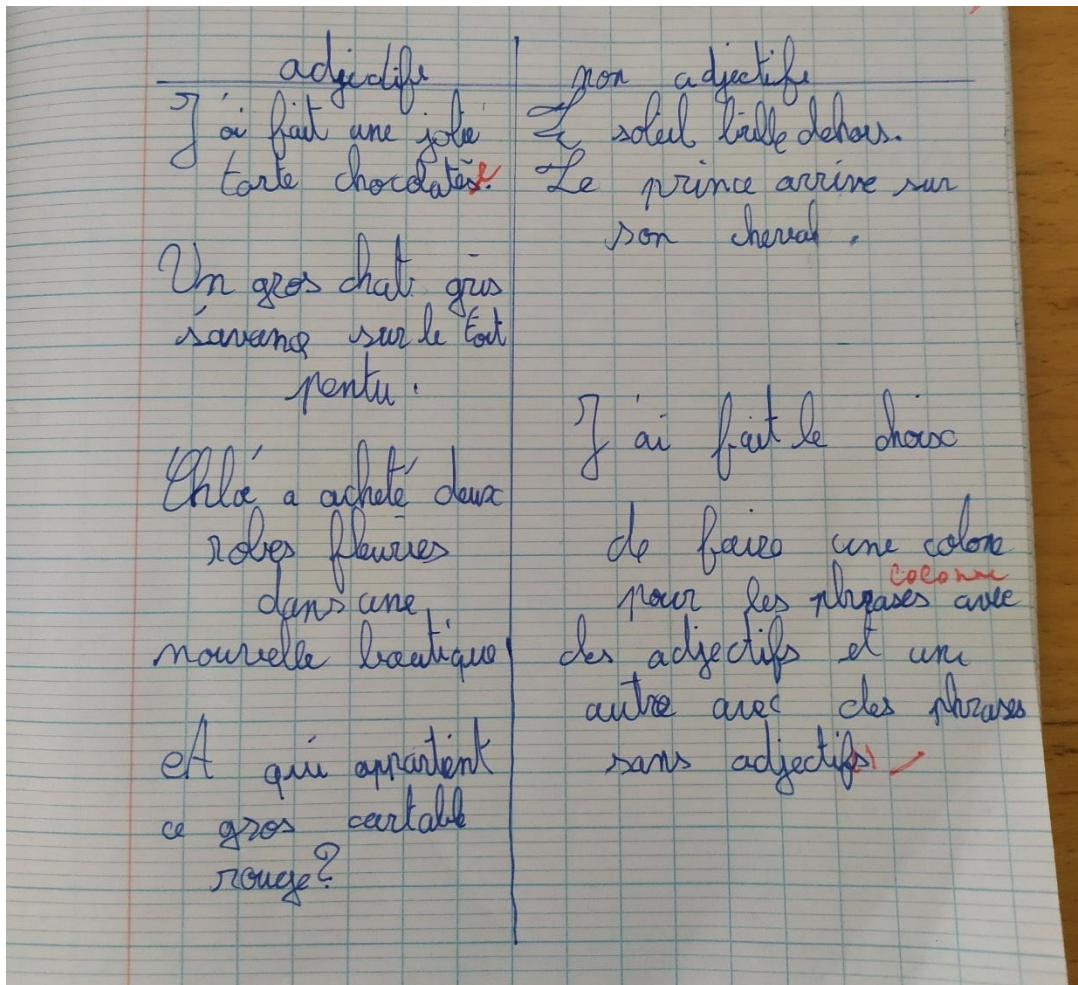 adjectifs
J'ai fait une jolie
tarte chocolatée.
Un gros chat gris
s'avance sur le toit
pentu.
Chloé a acheté deux
robes fleuries
dans une
nouvelle boutique
A qui appartient
ce gros cartable
rouge?
non adjectifs
Le soleil brille dehors.
Le prince arrive sur
son cheval.
J'ai fait le choix
de faire une colone
colonne
pour les phrases avec
des adjectifs et une
autre avec des phrases
sans adjectifs